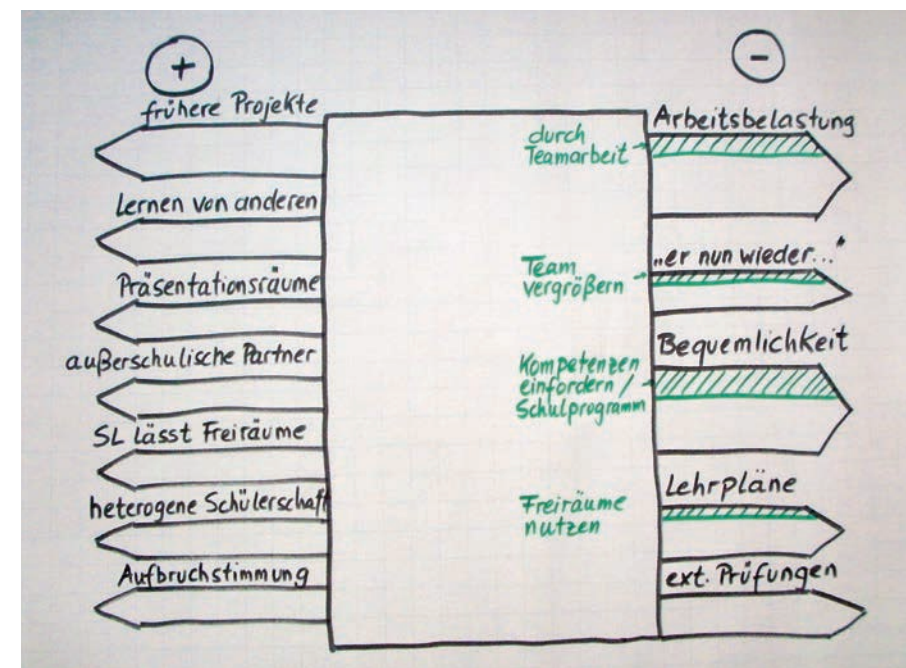 +
frühere Projekte
Lernen von anderen
Präsentationsräume
außerschulische Partner
SL lässt Freiräume
heterogene Schülerschaft
Aufbruchstimmung
durch
Teamarbeit
Team
vergrößern
Kompetenzen
einfordern /
Schulprogramm
Freiräume
nutzen
-
Arbeitsbelastung
„er nun wieder..."
Bequemlichkeit
Lehrpläne
ext. Prüfungen